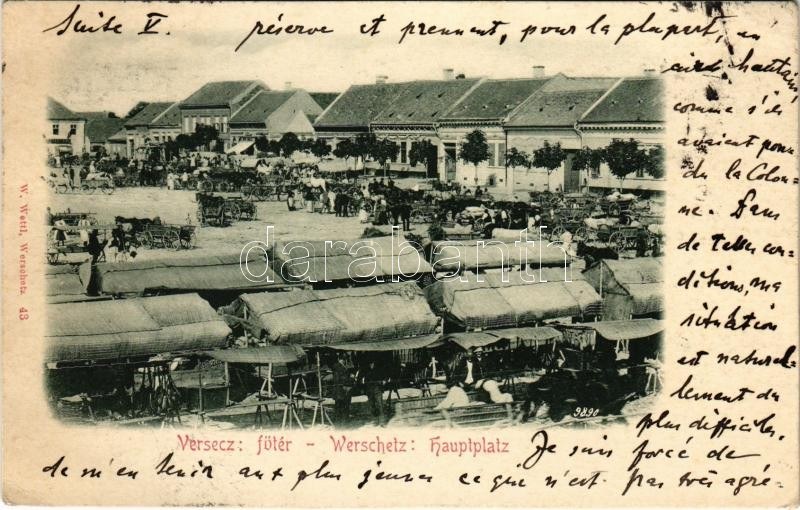 Suite V. réserve et prennent, pour la plupart, un
air hautain
comme s'ils
avaient pour
du la Colon-
ne. Dans
de telles con-
ditions, ma
situation
est naturel-
lement du
plus difficiles,
Je suis forcé de
de m'en tenir aux plus jeunes ce qui n'est pas très agré-
W. Wettl, Werschetz. 43
Darabanth
9890
Versecz: főtér - Werschetz: Hauptplatz